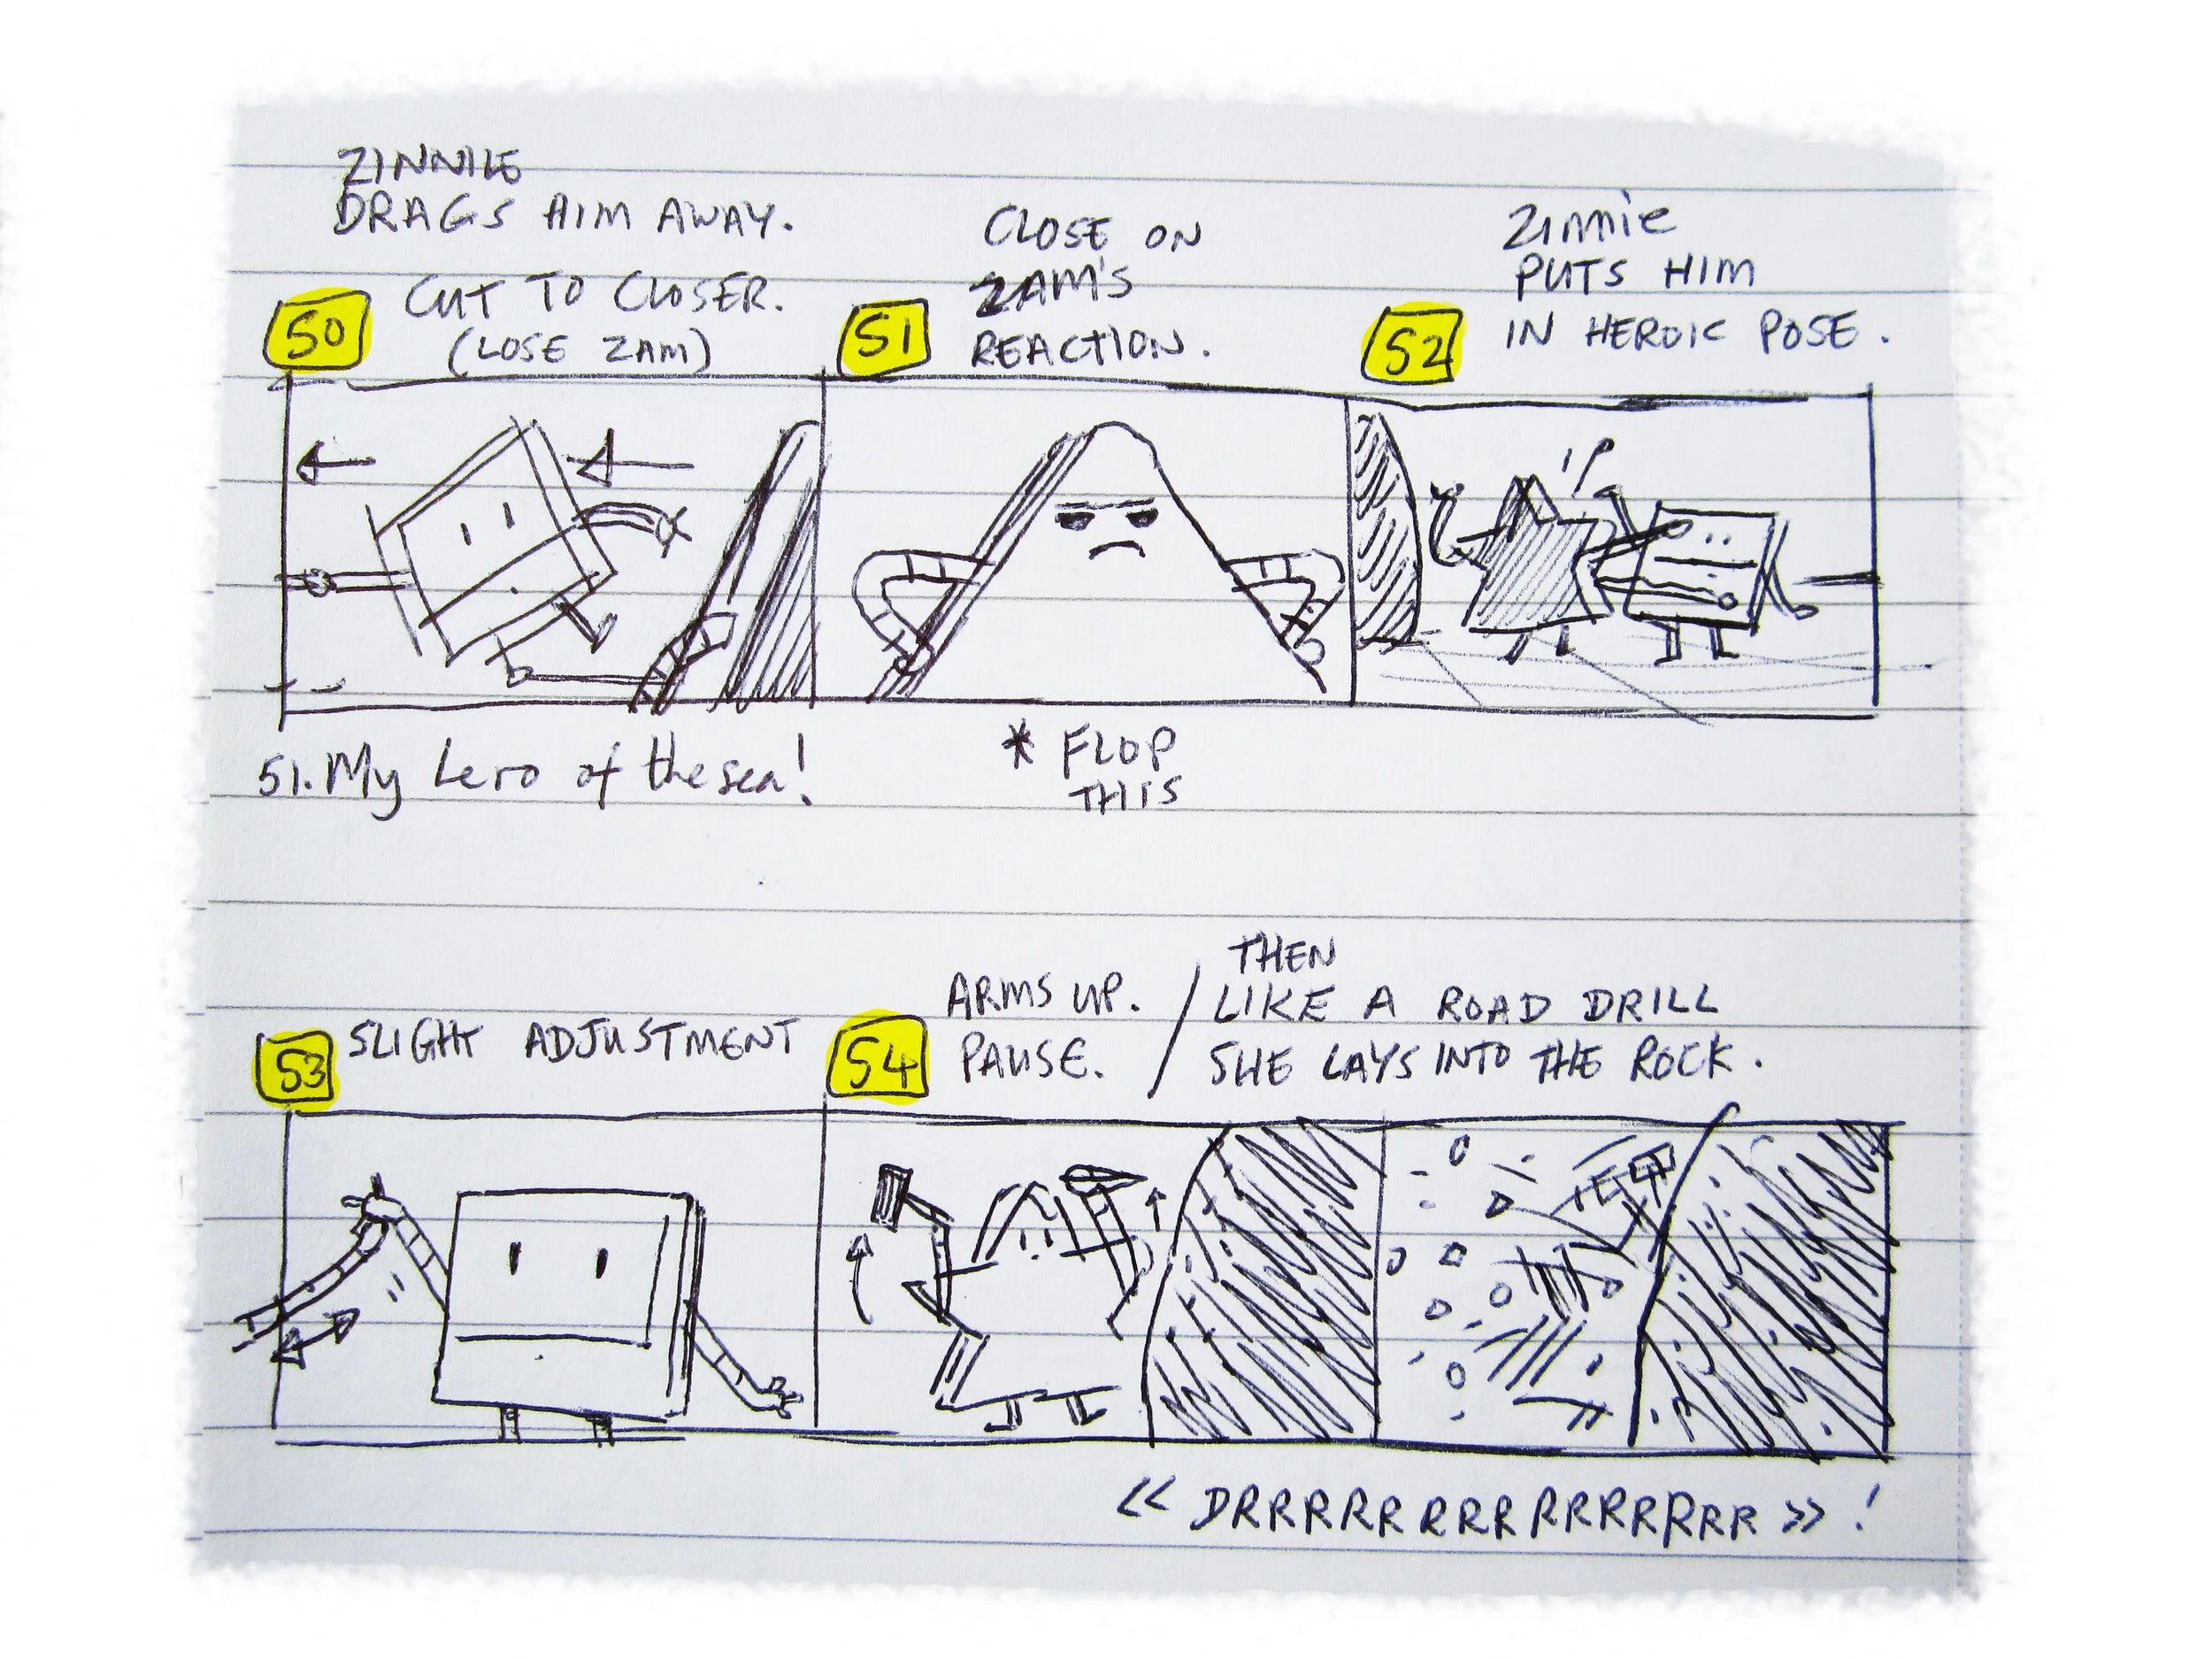 ZINNIE
DRAGS HIM AWAY.
50
CUT TO CLOSER.
(LOSE ZAM)
51
CLOSE ON
ZAM'S
REACTION.
52
Zinnie
PUTS HIM
IN HEROIC POSE.
51. My hero of the sea!
* FLOP
THIS
53
SLIGHT ADJUSTMENT
54
ARMS UP.
PAUSE.
/ THEN
LIKE A ROAD DRILL
SHE LAYS INTO THE ROCK.
<< DRRRRRRRRRRRRRRRR >> !